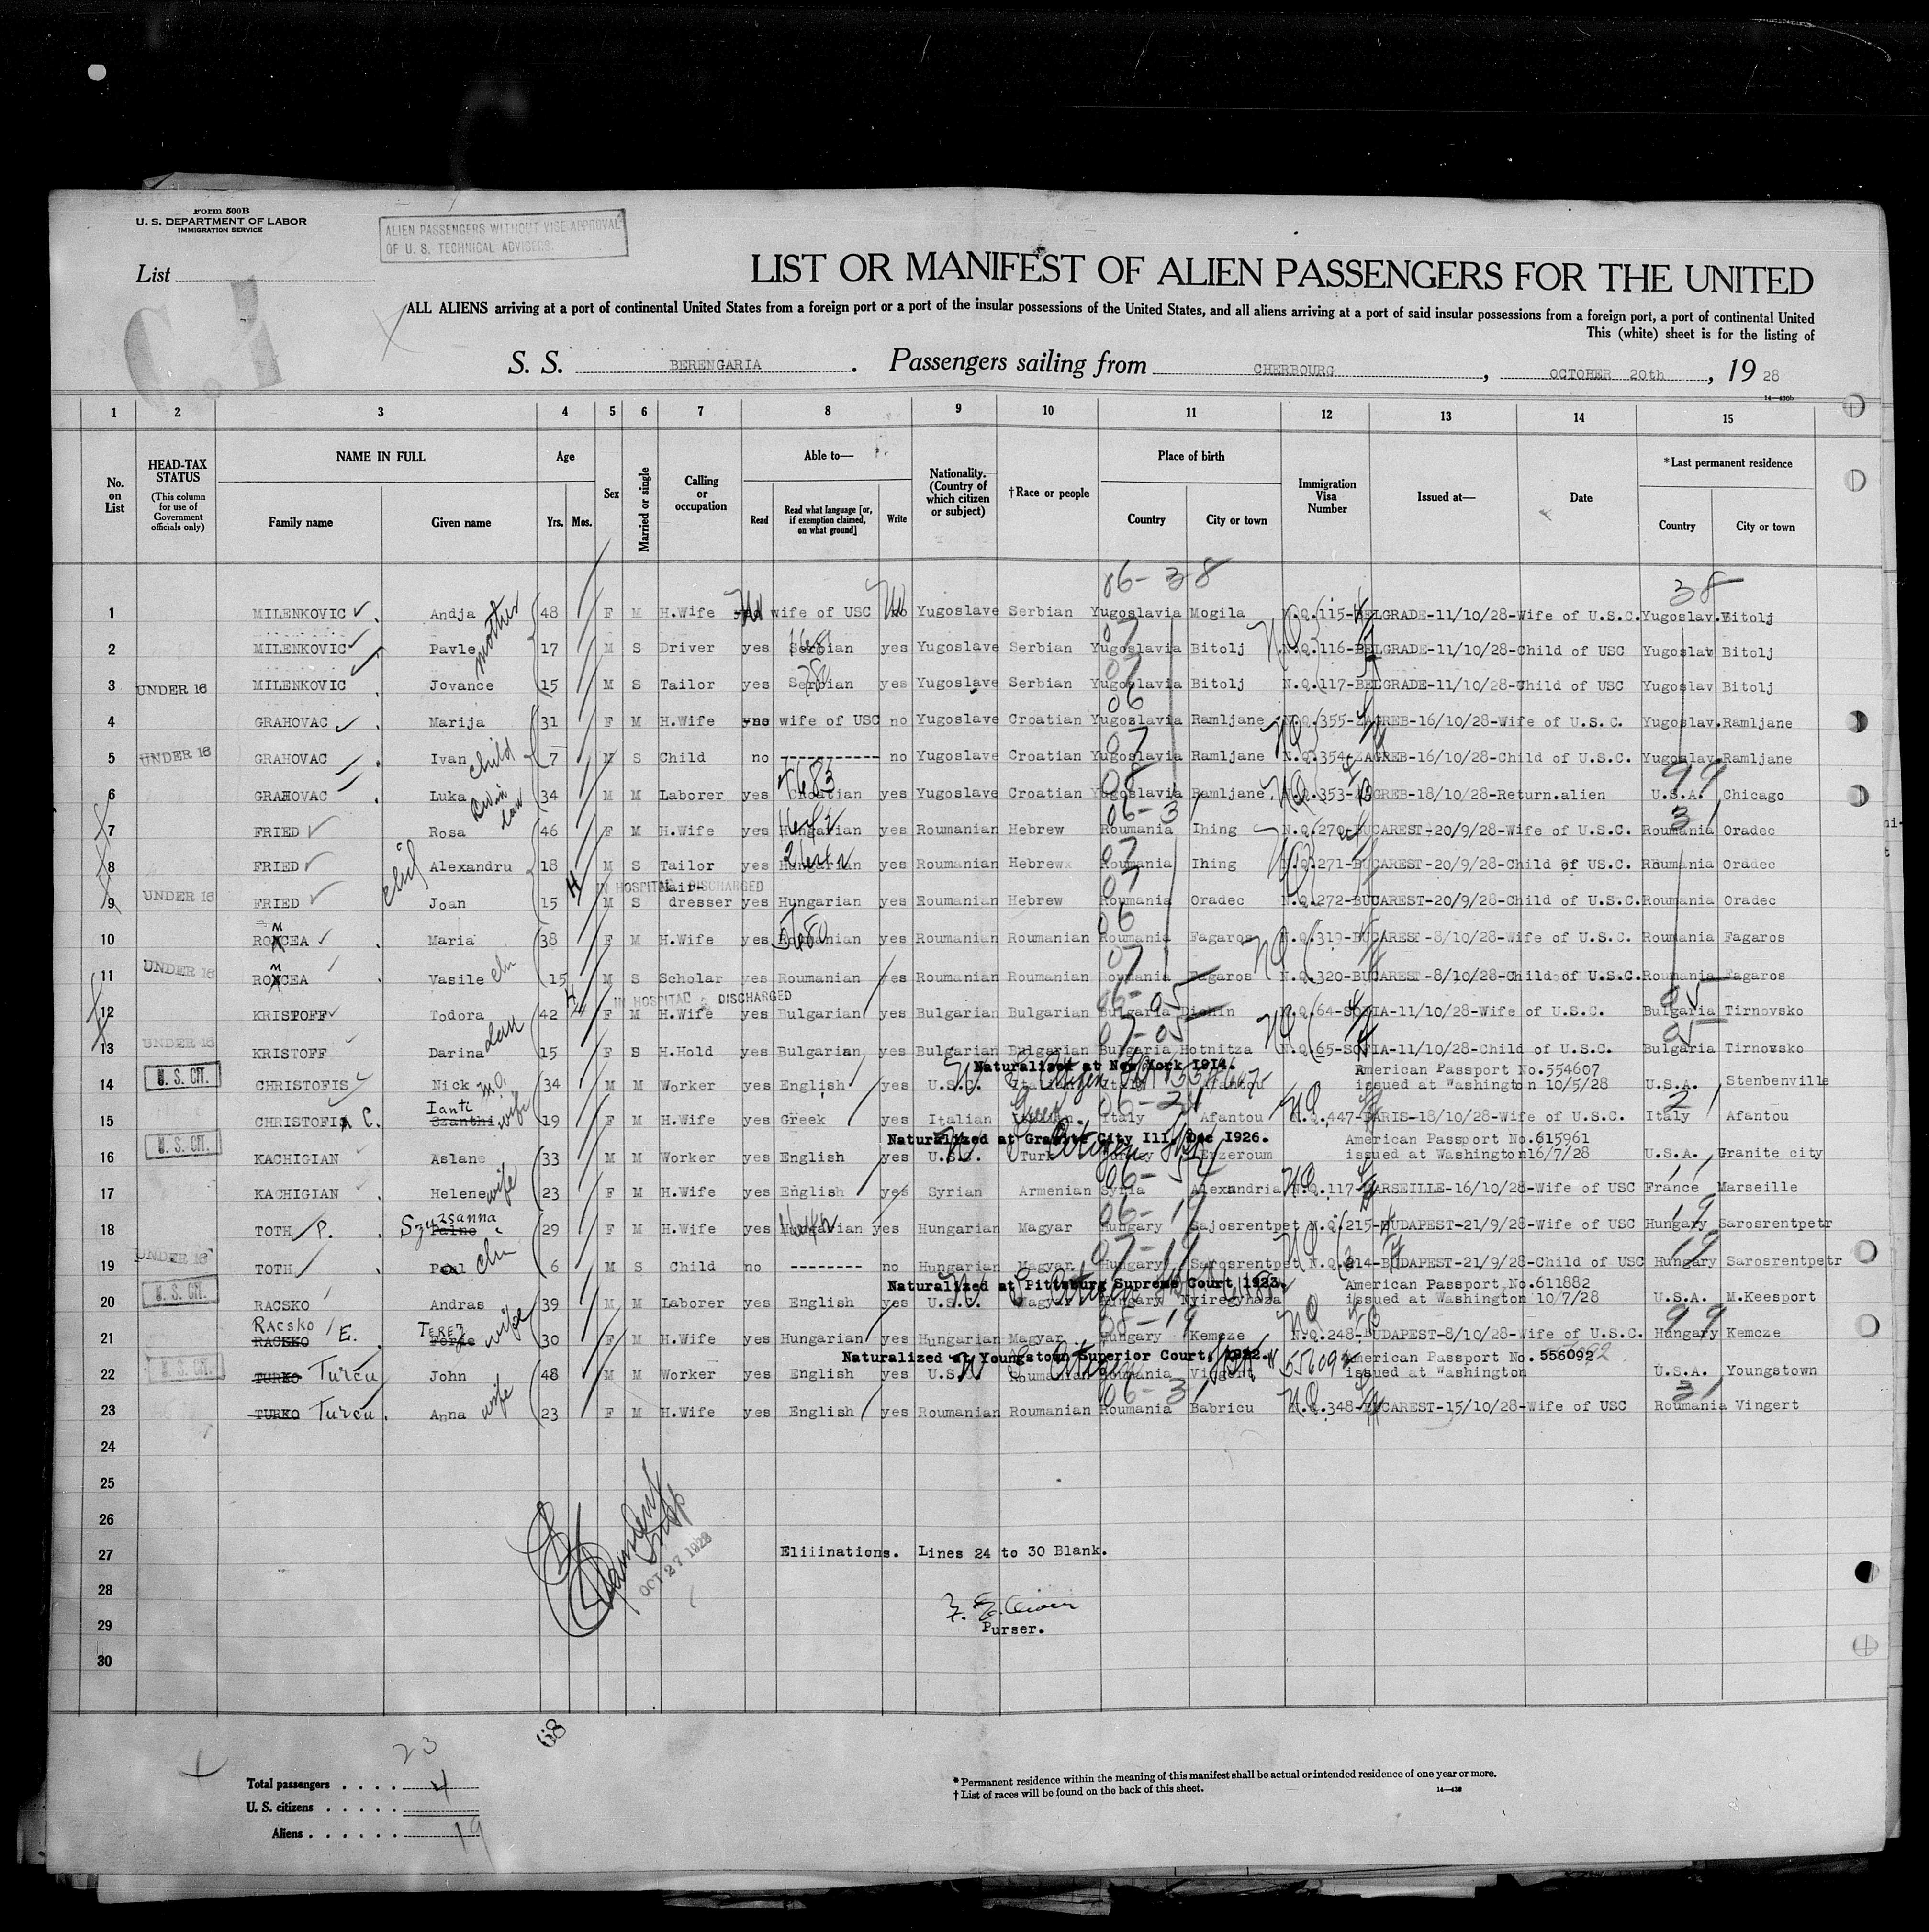 Form 500B
U. S. DEPARTMENT OF LABOR
IMMIGRATION SERVICE
ALIEN PASSENGERS WITHOUT VISE APPROVAL
OF U. S. TECHNICAL ADVISERS.
List
LIST OR MANIFEST OF ALIEN PASSENGERS FOR THE UNITED
ALL ALIENS arriving at a port of continental United States from a foreign port or a port of the insular possessions of the United States, and all aliens arriving at a port of said insular possessions from a foreign port, a port of continental United
This (white) sheet is for the listing of
S. S. BERENGARIA. Passengers sailing from CHERBOURG, OCTOBER 20th, 19 28
14—430b
1 2 3 4 5 6 7 8 9 10 11 12 13 14 15
No. on List
HEAD-TAX STATUS (This column for use of Government officials only)
NAME IN FULL Family name Given name
Age Yrs. Mos.
Sex
Married or single
Calling or occupation
Able to— Read Read what language [or, if exemption claimed, on what ground] Write
Nationality. (Country of which citizen or subject)
†Race or people
Place of birth Country City or town
Immigration Visa Number
Issued at—
Date
*Last permanent residence Country City or town
06- 38 38
1 MILENKOVIC Andja 48 F M H.Wife no wife of USC no Yugoslave Serbian Yugoslavia Mogila N.Q.115-BELGRADE-11/10/28-Wife of U.S.C. Yugoslav. Bitolj
2 MILENKOVIC Pavle mother 17 M S Driver yes Serbian yes Yugoslave Serbian Yugoslavia Bitolj N.Q.116-BELGRADE-11/10/28-Child of USC Yugoslav Bitolj
3 UNDER 16 MILENKOVIC Jovance 15 M S Tailor yes Serbian yes Yugoslave Serbian Yugoslavia Bitolj N.Q.117-BELGRADE-11/10/28-Child of USC Yugoslav Bitolj
4 GRAHOVAC Marija 31 F M H.Wife no wife of USC no Yugoslave Croatian Yugoslavia Ramljane N.Q.355-ZAGREB-16/10/28-Wife of U.S.C. Yugoslav. Ramljane
5 UNDER 16 GRAHOVAC Ivan child 7 M S Child no ----------- no Yugoslave Croatian Yugoslavia Ramljane N.Q.354-ZAGREB-16/10/28-Child of U.S.C. Yugoslav. Ramljane
6 GRAHOVAC Luka 34 M M Laborer yes Croatian yes Yugoslave Croatian Yugoslavia Ramljane N.Q.353-ZAGREB-18/10/28-Return.alien U.S.A. Chicago
7 FRIED Rosa 46 F M H.Wife yes Hungarian yes Roumanian Hebrew Roumania Ihing N.Q.270-BUCAREST-20/9/28-Wife of U.S.C. Roumania Oradec
8 FRIED Alexandru 18 M S Tailor yes Hungarian yes Roumanian Hebrew Roumania Ihing N.Q.271-BUCAREST-20/9/28-Child of US.C. Roumania Oradec
IN HOSPITAL DISCHARGED
9 UNDER 16 FRIED Joan 15 M S Hair dresser yes Hungarian yes Roumanian Hebrew Roumania Oradec N.Q.272-BUCAREST-20/9/28-Child of U.S.C. Roumania Oradec
10 ROMCEA Maria 38 F M H.Wife yes Roumanian yes Roumanian Roumanian Roumania Fagaros N.Q.319-BUCAREST-8/10/28-Wife of U.S.C. Roumania Fagaros
11 UNDER 16 ROMCEA Vasile 15 M S Scholar yes Roumanian yes Roumanian Roumanian Roumania Fagaros N.Q.320-BUCAREST-8/10/28-Child of U.S.C. Roumania Fagaros
IN HOSPITAL DISCHARGED
12 KRISTOFF Todora 42 F M H.Wife yes Bulgarian yes Bulgarian Bulgarian Bulgaria Dichin N.Q.64-SOFIA-11/10/28-Wife of U.S.C. Bulgaria Tirnovsko
13 UNDER 16 KRISTOFF Darina dau 15 F S H.Hold yes Bulgarian yes Bulgarian Bulgarian Bulgaria Hotnitza N.Q.65-SOFIA-11/10/28-Child of U.S.C. Bulgaria Tirnovsko
Naturalized at New York 1914. American Passport No.554607
14 U.S. CIT. CHRISTOFIS Nick 34 M M Worker yes English yes U.S.C. Italian Italy Afantou issued at Washington 10/5/28 U.S.A. Stenbenville
15 CHRISTOFI C. Ianti Szanthi wife 19 F M H.Wife yes Greek yes Italian Greek Italy Afantou N.Q.447-PARIS-18/10/28-Wife of U.S.C. Italy Afantou
Naturalized at Granite City Ill. Dec 1926. American Passport No.615961
16 U.S. CIT. KACHIGIAN Aslane 33 M M Worker yes English yes U.S.C. Turk Turkey Erzeroum issued at Washington16/7/28 U.S.A. Granite city
17 KACHIGIAN Helene wife 23 F M H.Wife yes English yes Syrian Armenian Syria Alexandria N.Q.117-MARSEILLE-16/10/28-Wife of USC France Marseille
18 TOTH P. Szuzsanna Palne 29 F M H.Wife yes Hungarian yes Hungarian Magyar Hungary Sajosrentpet N.Q.215-BUDAPEST-21/9/28-Wife of USC Hungary Sarosrentpetr
19 UNDER 16 TOTH Pal 6 M S Child no -------- no Hungarian Magyar Hungary Sarosrentpet N.Q.214-BUDAPEST-21/9/28-Child of USC Hungary Sarosrentpetr
Naturalized at Pittsburg Supreme Court 1923. American Passport No.611882
20 U.S. CIT. RACSKO Andras 39 M M Laborer yes English yes U.S.C. Magyar Hungary Nyiregyhaza issued at Washington 10/7/28 U.S.A. M.Keesport
21 Racsko E. RACSKO TEREZ wife 30 F M H.Wife yes Hungarian yes Hungarian Magyar Hungary Kemcze N.Q.248-BUDAPEST-8/10/28-Wife of U.S.C. Hungary Kemcze
Naturalized at Youngstown Superior Court. 1922. American Passport No. 556092
22 U.S. CIT. TURKO Turcu John 48 M M Worker yes English yes U.S.C. Roumanian Roumania Vingent issued at Washington U.S.A. Youngstown
23 TURKO Turcu Anna wife 23 F M H.Wife yes English yes Roumanian Roumanian Roumania Babricu N.Q.348-BUCAREST-15/10/28-Wife of USC Roumania Vingert
24
25
26
27 Eliiinations. Lines 24 to 30 Blank.
OCT 27 1928
28
29 Purser.
30
68
23
Total passengers . . . . 4
U. S. citizens . . . . .
Aliens . . . . . . 19
* Permanent residence within the meaning of this manifest shall be actual or intended residence of one year or more.
† List of races will be found on the back of this sheet.
14—430